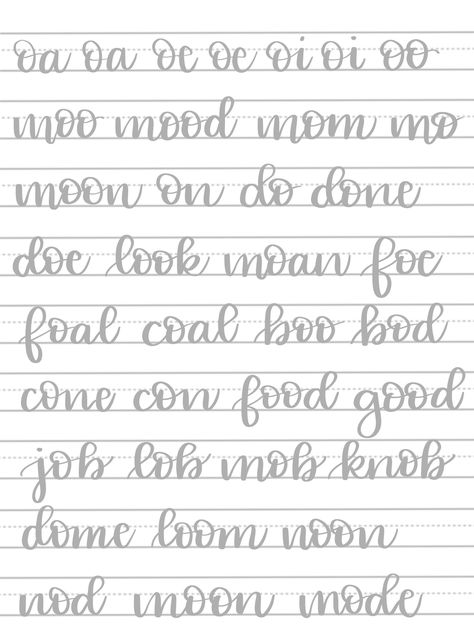 oa oa oe oe oi oi oo
moo mood mom mo
moon on do done
doe look moan foe
foal coal boo bod
cone con food good
job lob mob knob
dome loom noon
nod moon mode